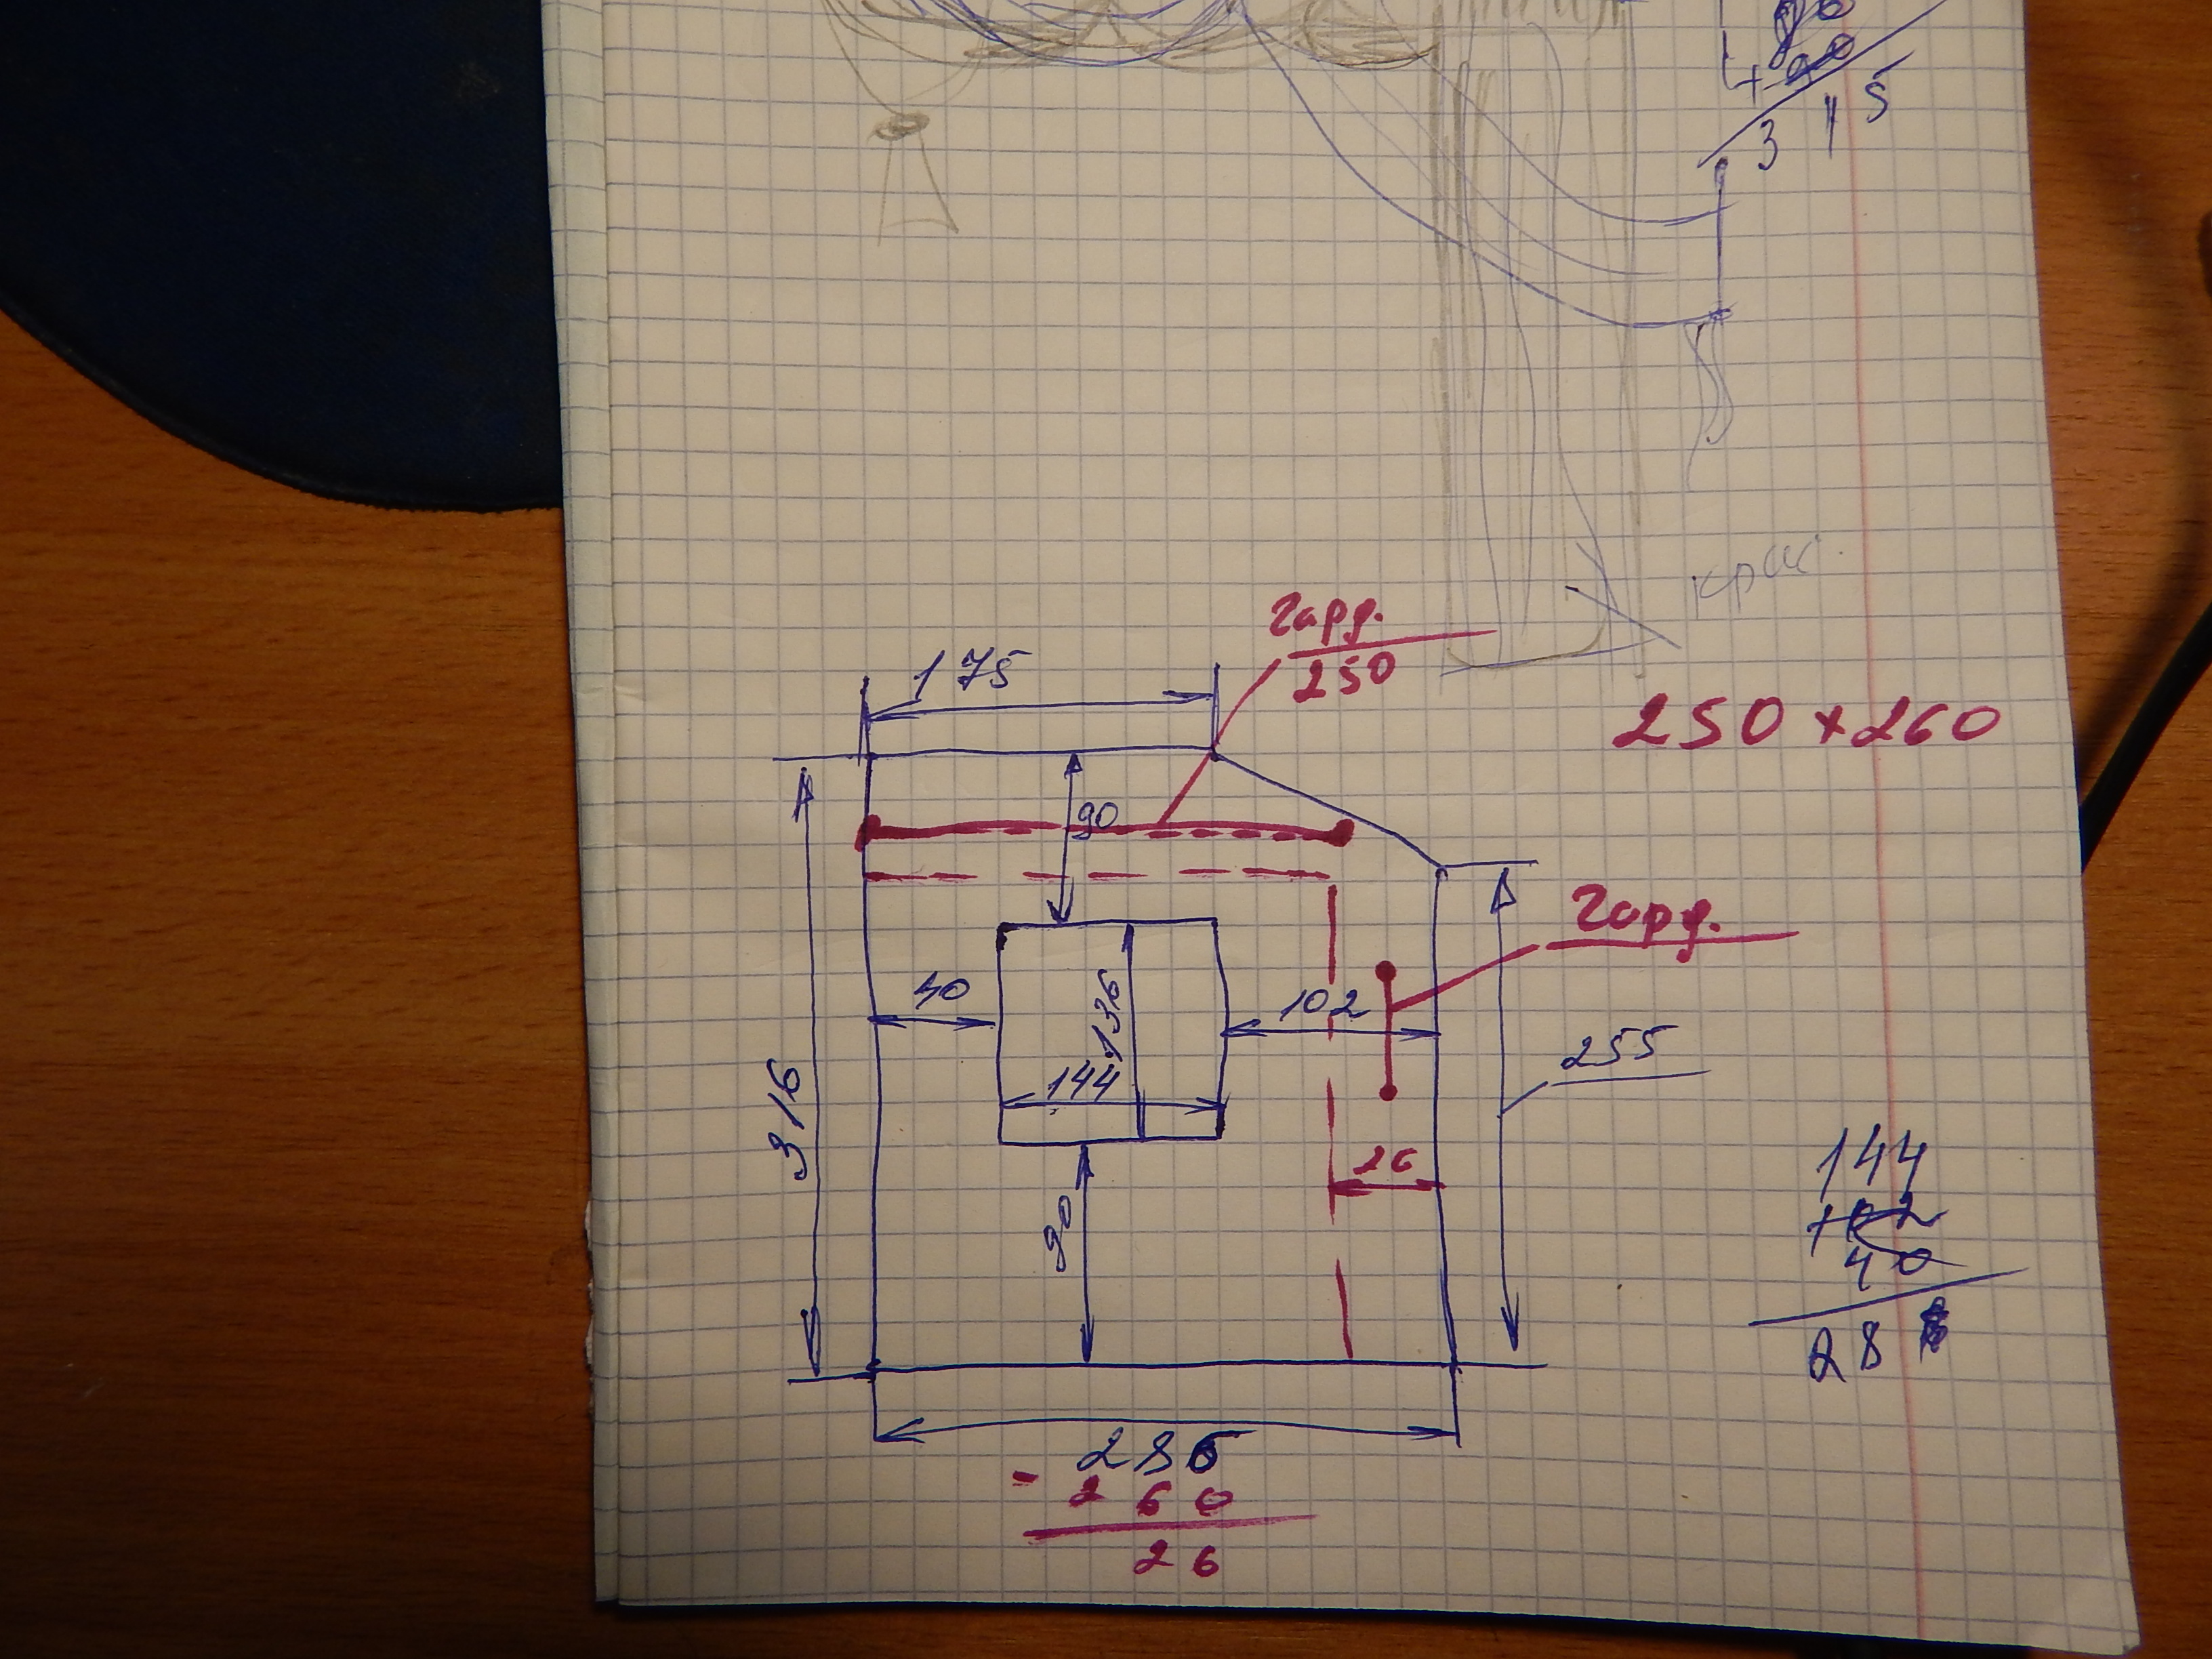 + 90
3 15
крис.
гард.
250
175
250 × 260
90
гард.
40
102
136
144
255
316
26
90
144
+102
40
286
286
- 260
26